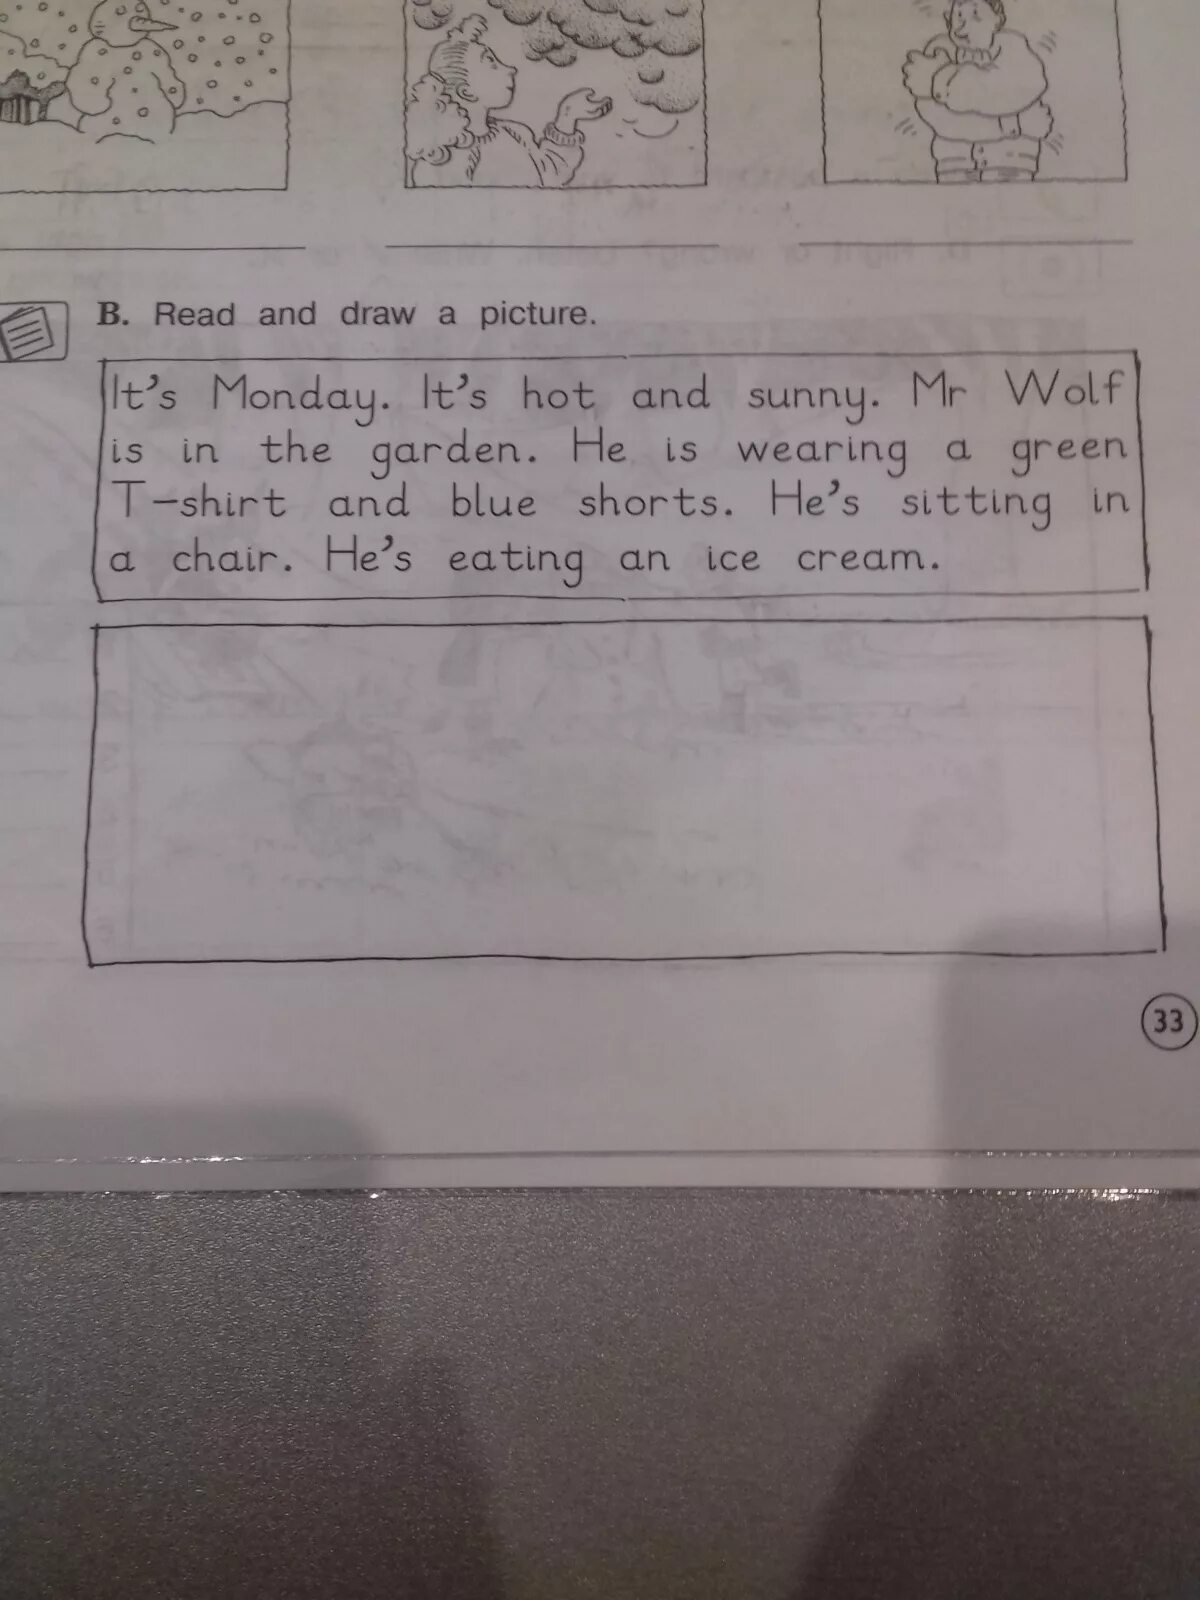 B. Read and draw a picture.
It's Monday. It's hot and sunny. Mr Wolf
is in the garden. He is wearing a green
T-shirt and blue shorts. He's sitting in
a chair. He's eating an ice cream.
33